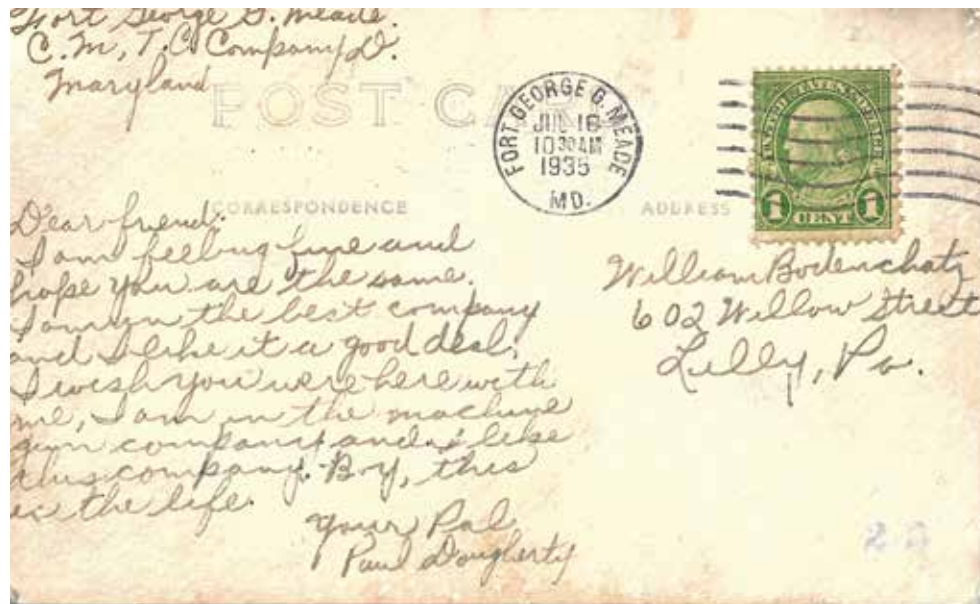 Fort George G. Meade.
C.M.T.C. Company D.
Maryland
POST CARD
FORT GEORGE G. MEADE
JUL 16
10 30 AM
1935
MD.
UNITED STATES POSTAGE
1 CENT 1
CORRESPONDENCE
ADDRESS
Dear friend:
I am feeling fine and
hope you are the same.
I am in the best company
and I like it a good deal,
I wish you were here with
me, I am in the machine
gun company and I like
this company. Boy, this
is the life.
Your Pal
Paul Dougherty
William Bodenschatz
602 Willow Street
Lilly, Pa.